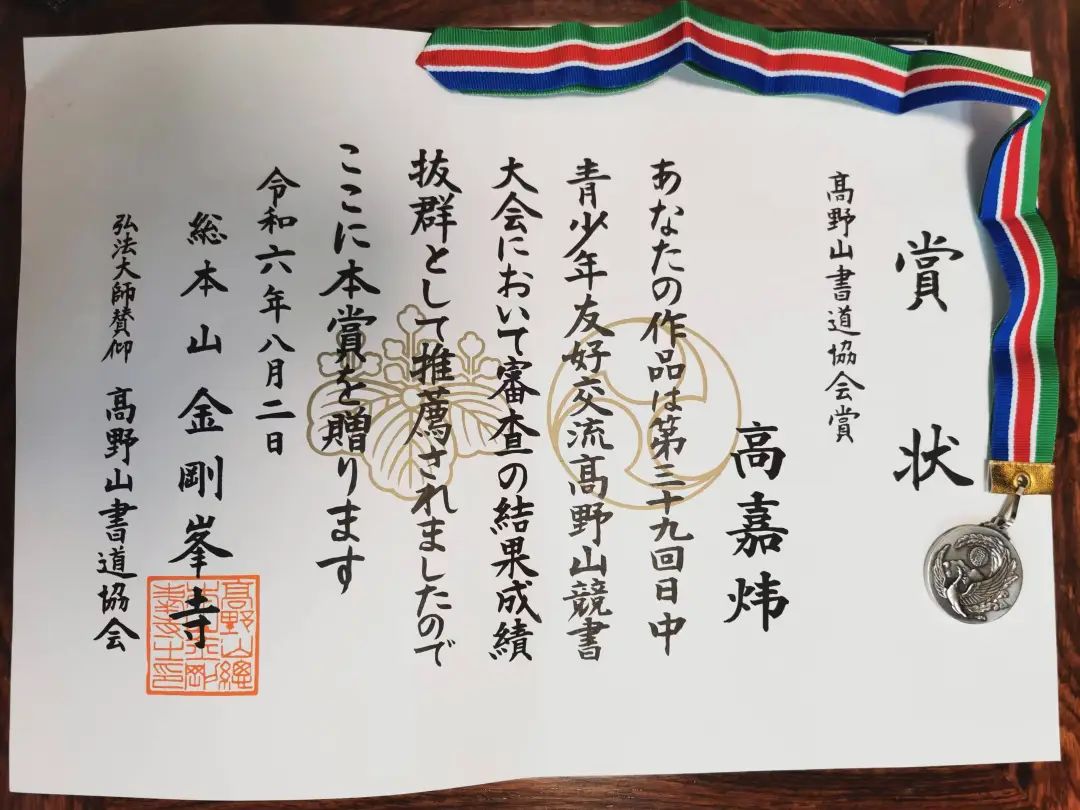 賞状
髙野山書道協会賞
高嘉炜
あなたの作品は第三十九回日中
青少年友好交流髙野山競書
大会において審査の結果成績
抜群として推薦されましたので
ここに本賞を贈ります
令和六年八月二日
総本山金剛峯寺
弘法大師賛仰 髙野山書道協会